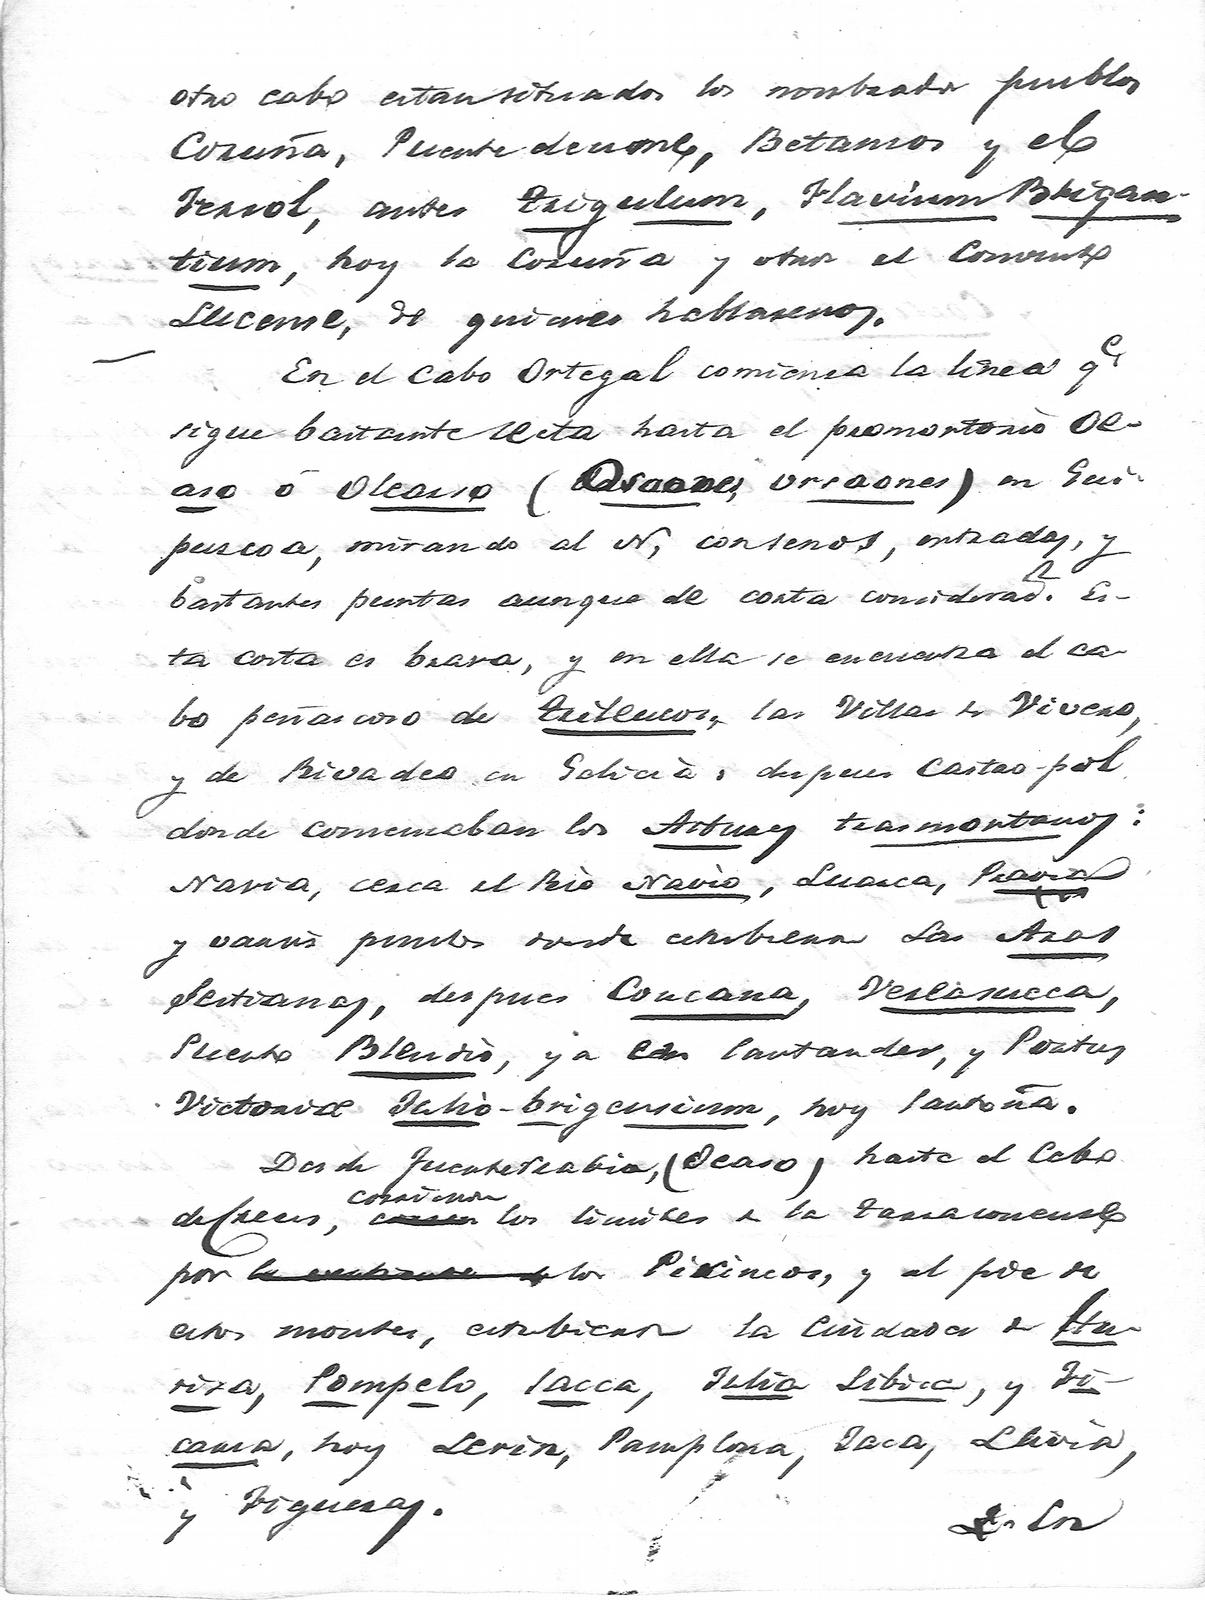 otro cabo estan situados los nombrados pueblos
Coruña, Puente deume, Betanzos y el
Ferrol, antes Trigulum, Flavium Brigan-
tium, hoy la Coruña y otros el Convento
Lucense, de quienes hablaremos.
En el Cabo Ortegal comienza la linea qe
sigue bastante recta hasta el promontorio Oe-
aso ó Oleasso ( Osaones, Ursaones) en Gui-
puzcoa, mirando al N, con senos, entradas, y
bastantes puntas aunque de corta considerac.n Es-
ta costa es brava, y en ella se encuentra el ca-
bo peñascoso de Trileucos, las Villas de Vivero,
y de Rivadeo en Galicia: despues Castro-pol
donde comenzaban los Astures trasmontanos:
Navia, cerca el Rio Navio, Luarca, Pravia
y varios puntos donde estubieron Las Aras
Sextianas, despues Concana, Vereasueca,
Puerto Blendio, ya en Santander, y Portus
Victoriæ Julio-brigensium, hoy Santoña.
Desde Fuenterrabia, (Oeaso) hasta el Cabo
de Creus, corrieron los limites de la Tarraconense
por los Pirineos, y al pie de
estos montes, estubieron la Ciudades de Itu-
risa, Pompelo, Jacca, Julia Libica, y Fi-
caria, hoy Lerin, Pamplona, Jaca, Llivia,
y Figueras.